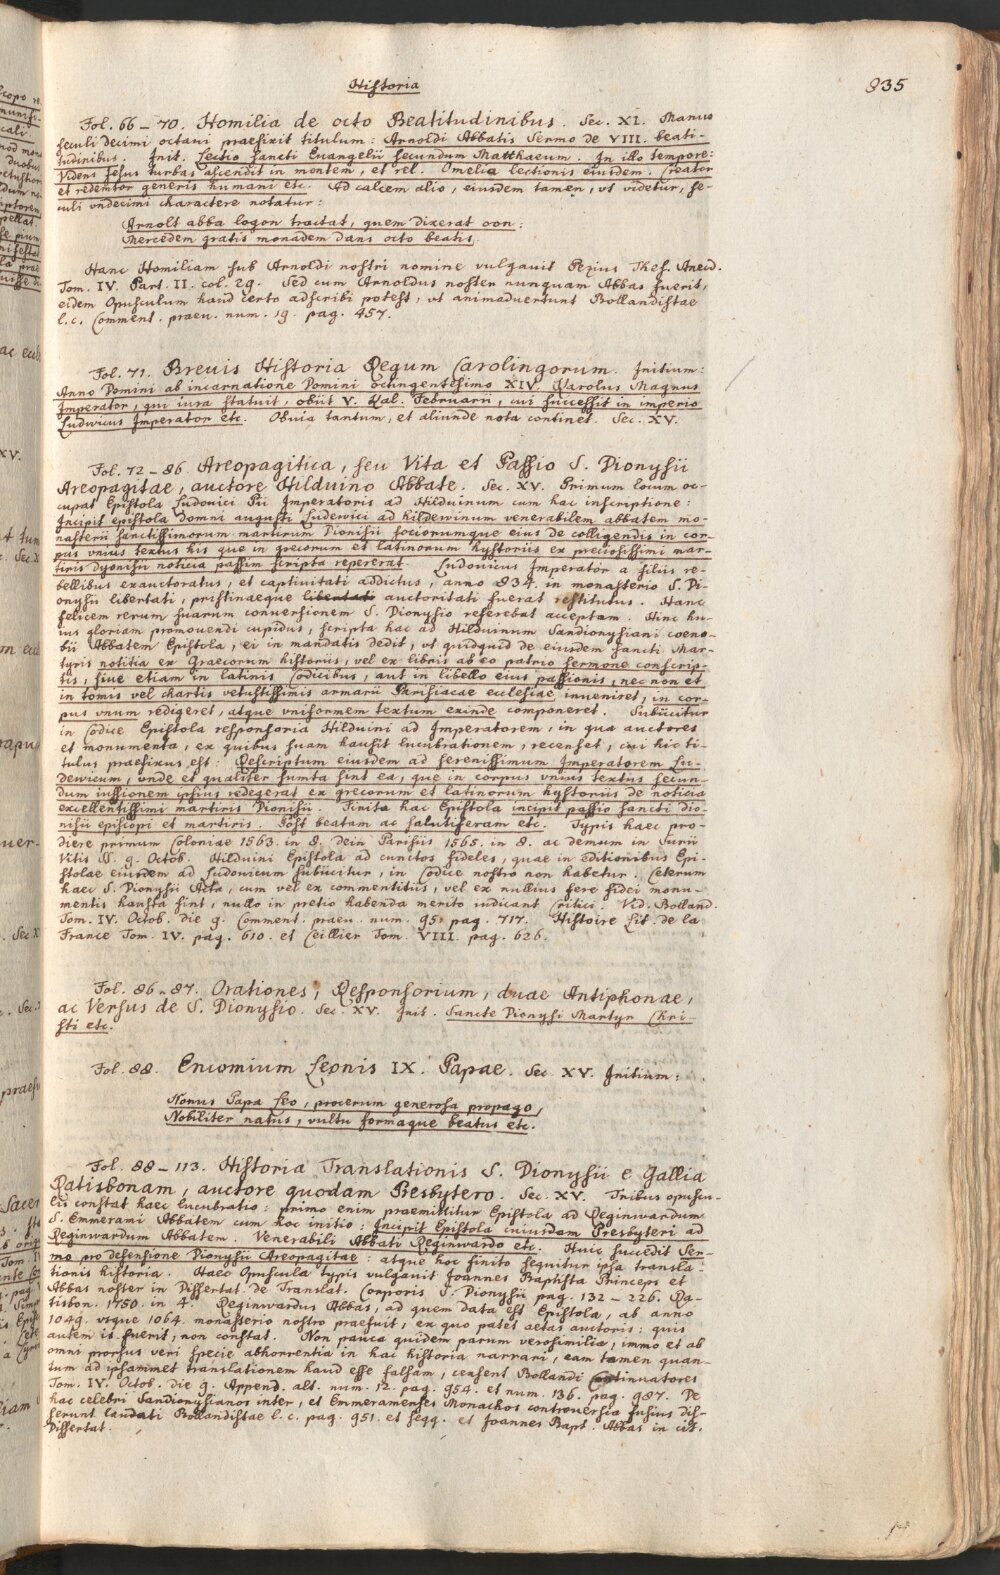 Historia
835
Fol. 66 – 70. Homilia de octo Beatitudinibus. Sec. XI. Manus
seculi decimi octaui praefixit titulum: Arnoldi Abbatis Sermo de VIII. beati-
tudinibus. Init. Lectio sancti Euangelii secundum Matthaeum. In illo tempore:
Videns Jesus turbas ascendit in montem, et rel. Omelia lectionis eiusdem. Creator
et redemtor generis humani etc. Ad calcem alio, eiusdem tamen, vt videtur, se-
culi vndecimi charactere notatur:
Arnolt abba logon tractat, quem dixerat oon:
Mercedem gratis monadem dans octo beatis.
Hanc Homiliam sub Arnoldi nostri nomine vulgauit Pezius Thes. Anecd.
Tom. IV. Part. II. col. 29. Sed cum Arnoldus noster nunquam Abbas fuerit,
eidem Opusculum haud certo adscribi potest, vt animaduertunt Bollandistae
l.c. Comment. praeu. num. 19. pag. 457.
Fol. 71. Breuis Historia Regum Carolingorum. Initium:
Anno Domini ab incarnatione Domini octingentesimo XIV. Karolus Magnus
Imperator, qui iura statuit, obiit V. Kal. Februarii, cui successit in imperio
Ludwicus Imperator etc. Obuia tantum, et aliunde nota continet. Sec. XV.
Fol. 72 – 86. Areopagitica, seu Vita et Passio S. Dionysii
Areopagitae, auctore Hilduino Abbate. Sec. XV. Primum locum oc-
cupat Epistola Ludouici Pii Imperatoris ad Hilduinum cum hac inscriptione:
Incipit epistola domni augusti Ludewici ad hildewinum venerabilem abbatem mo-
nasterii sanctissimorum martirum Dionisii sociorumque eius de colligendis in cor-
pus vnius textus his que in grecorum et latinorum hystoriis ex preciosissimi mar-
tiris dyonisii noticia passim scripta repererat. Ludouicus Imperator a filiis re-
bellibus exauctoratus, et captiuitati addictus, anno 834. in monasterio S. Di-
onysii libertati, pristinaeque libertati auctoritati fuerat restitutus. Hanc
felicem rerum suarum conuersionem S. Dionysio referebat acceptam. Hinc hu-
ius gloriam promouendi cupidus, scripta hac ad Hilduinum Sandionysiani coeno-
bii Abbatem Epistola, ei in mandatis dedit, vt quidquid de eiusdem sancti Mar-
tyris notitia ex Graecorum historiis, vel ex libris ab eo patrio sermone conscrip-
tis, siue etiam in latinis Codicibus, aut in libello eius passionis, nec non et
in tomis vel chartis vetustissimis armarii Parisiacae ecclesiae inueniret, in cor-
pus vnum redigeret, atque vniformem textum exinde componeret. Subiicitur
in Codice Epistola responsoria Hilduini ad Imperatorem, in qua auctores
et monumenta, ex quibus suam hausit lucubrationem, recenset, cui hic ti-
tulus praefixus est: Rescriptum eiusdem ad serenissimum Imperatorem Lu-
dewicum, vnde et qualiter sumta sint ea, que in corpus vnius textus secun-
dum iussionem ipsius redegerat ex grecorum et latinorum hystoriis de noticia
excellentissimi martiris Dionisii. Finita hac Epistola incipit passio sancti dio-
nisii episcopi et martiris. Post beatam ac salutiferam etc. Typis haec pro-
diere primum Coloniae 1563. in 8. dein Parisiis 1565. in 8. ac demum in Surii
Vitis SS. 9. Octob. Hilduini Epistola ad cunctos fideles, quae in editionibus Epi-
stolae eiusdem ad Ludouicum subiicitur, in Codice nostro non habetur. Ceterum
haec S. Dionysii Acta, cum vel ex commentitiis, vel ex nullius fere fidei monu-
mentis hausta sint, nullo in pretio habenda merito iudicant Critici. Vid. Bolland.
Tom. IV. Octob. die 9. Comment. praeu. num. 95. pag. 717. Histoire Lit. de la
France Tom. IV. pag. 610. et Ceillier Tom. VIII. pag. 626.
Fol. 86 – 87. Orationes, Responsorium, duae Antiphonae,
ac Versus de S. Dionysio. Sec. XV. Init. Sancte Dionysi Martyr Chri-
sti etc.
Fol. 88. Encomium Leonis IX. Papae. Sec. XV. Initium:
Nonus Papa Leo, procerum generosa propago,
Nobiliter natus, vultu formaque beatus etc.
Fol. 88 – 113. Historia Translationis S. Dionysii e Gallia
Ratisbonam, auctore quodam Presbytero. Sec. XV. Tribus opuscu-
lis constat haec lucubratio: primo enim praemittitur Epistola ad Reginwardum
S. Emmerami Abbatem cum hoc initio: Incipit Epistola cuiusdam Presbyteri ad
Reginwardum Abbatem. Venerabili Abbati Reginwardo etc. Huic succedit Ser-
mo pro defensione Dionysii Areopagitae: atque hoc finito sequitur ipsa transla-
tionis historia. Haec Opuscula typis vulgauit Joannes Baptista Princeps et
Abbas noster in Dissertat. de Translat. Corporis S. Dionysii pag. 132 – 226. Ra-
tisbon. 1750. in 4. Reginwardus Abbas, ad quem data est Epistola, ab anno
1049. vsque 1064. monasterio nostro praefuit, ex quo patet aetas auctoris: quis
autem is fuerit, non constat. Non pauca quidem parum verosimilia, immo et ab
omni prorsus veri specie abhorrentia in hac historia narrari, eam tamen quan-
tum ad ipsammet translationem haud esse falsam, censent Bollandi Continuatores
Tom. IV. Octob. die 9. Append. alt. num. 12. pag. 954. et num. 136. pag. 987. De
hac celebri Sandionysianos inter, et Emmeramenses Monachos controuersia fusius dis-
serunt laudati Bollandistae l.c. pag. 951. et seqq. et Joannes Bapt. Abbas in cit.
Dissertat.